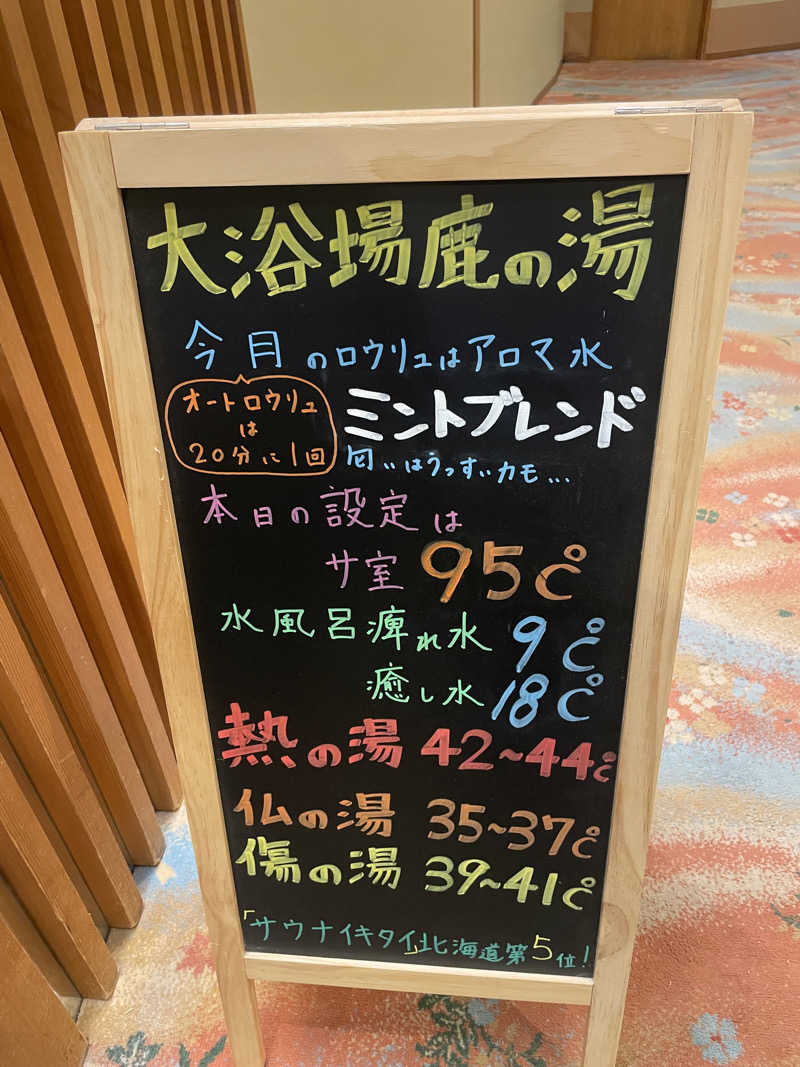 大浴場鹿の湯
今月のロウリュはアロマ水
オートロウリュ
は
20分に1回
ミントブレンド
匂いはうっすぃカモ...
本日の設定は
サ室 95℃
水風呂痺れ水 9℃
癒し水 18℃
熱の湯 42~44℃
仏の湯 35~37℃
傷の湯 39~41℃
「サウナイキタイ」北海道第5位!